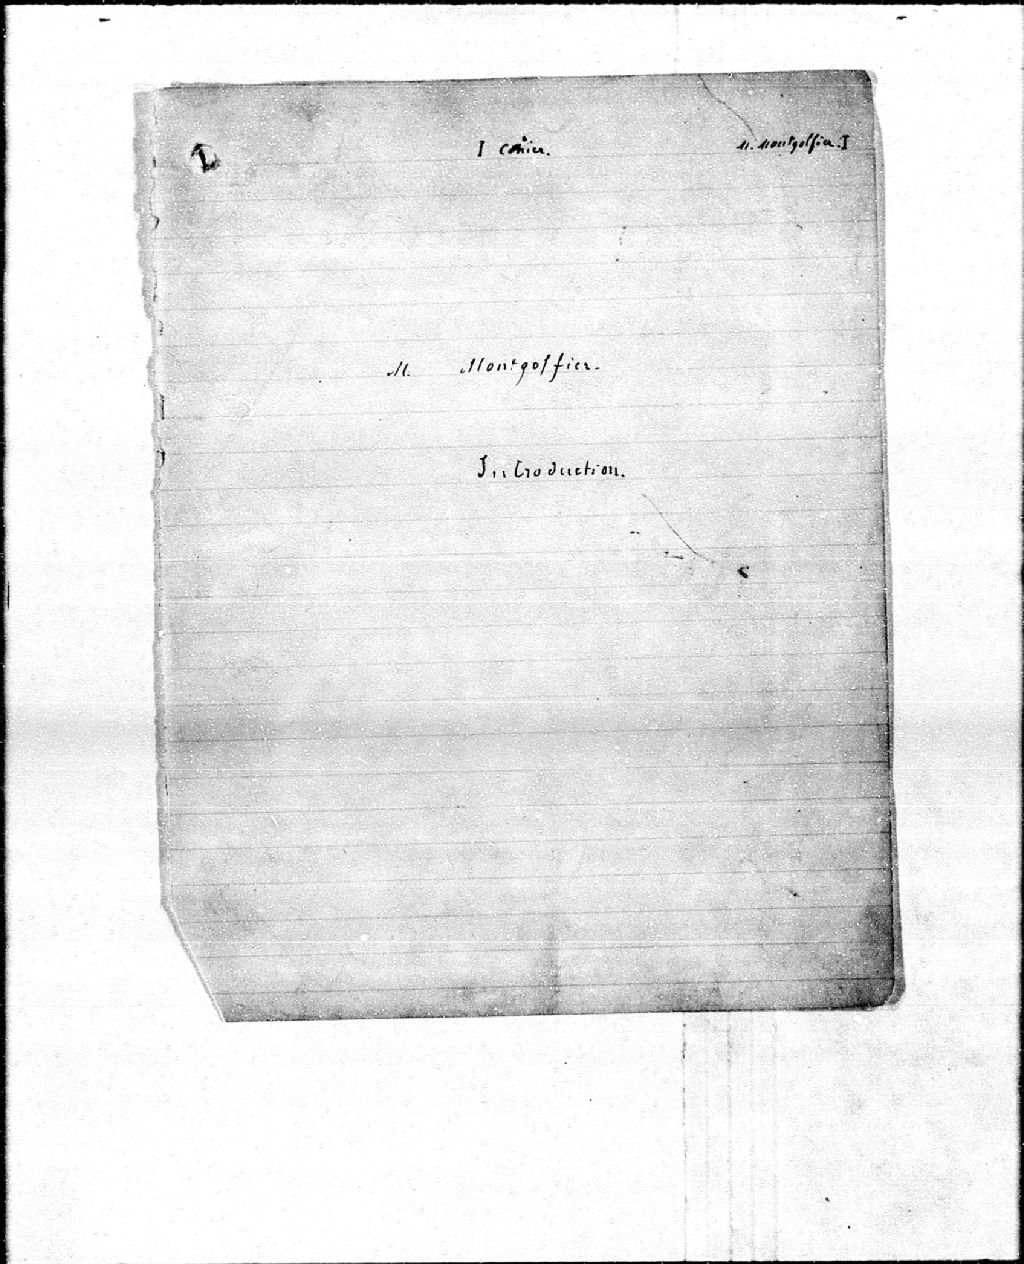 I Cahier. M. Montgolfier. I
M. Montgolfier.
Introduction.